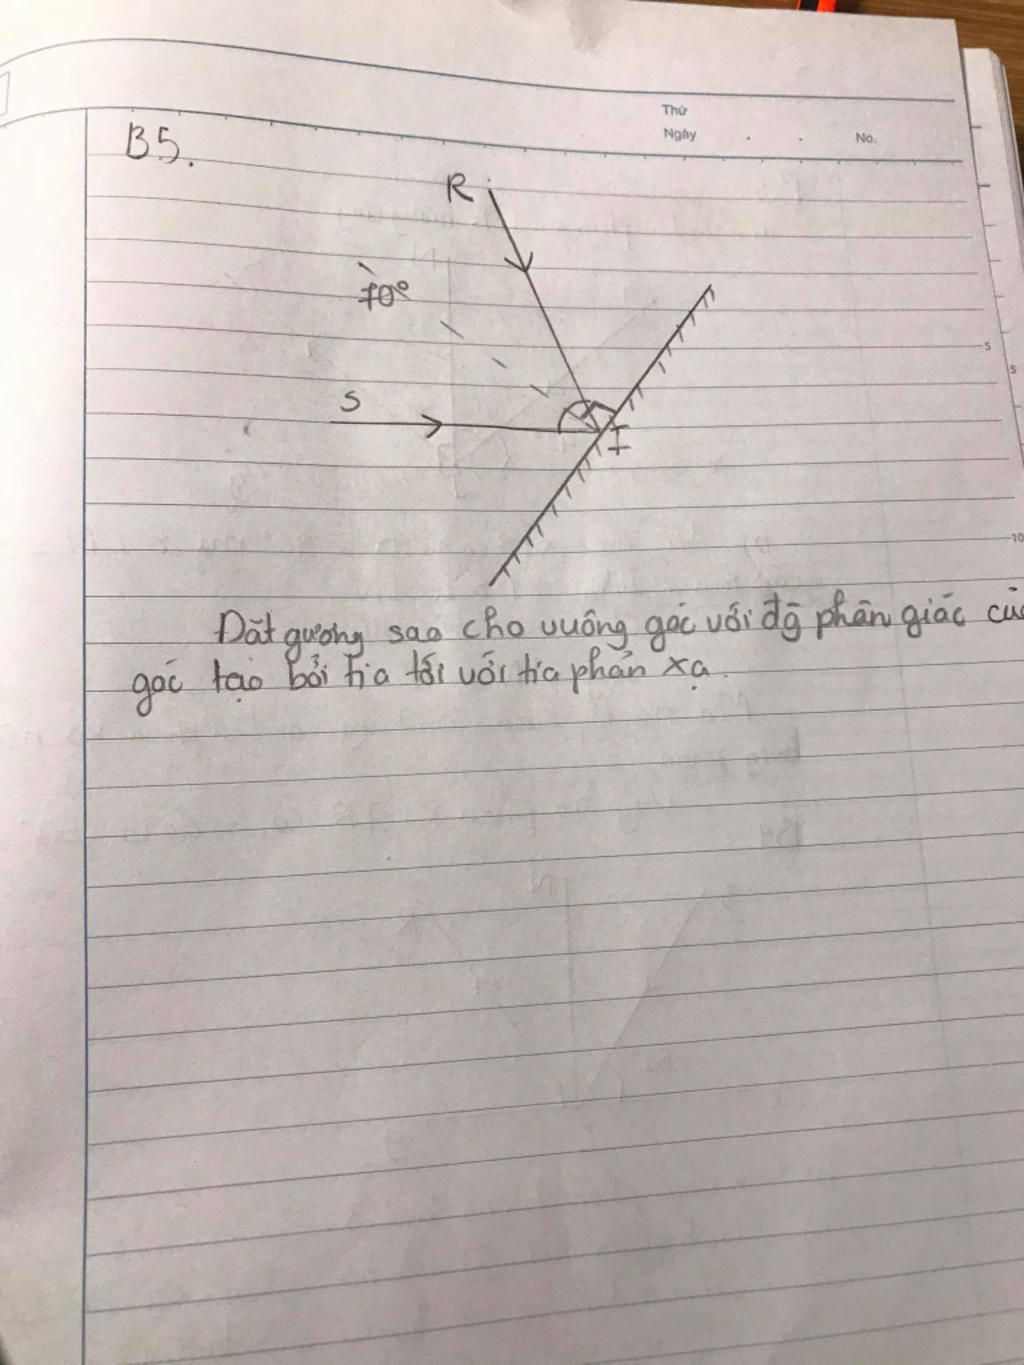 Thứ
Ngày . . No.
B5.
R
70°
S
I
5
5
10
Đặt gương sao cho vuông góc với đg phân giác củ
góc tạo bởi tia tới với tia phản xạ.